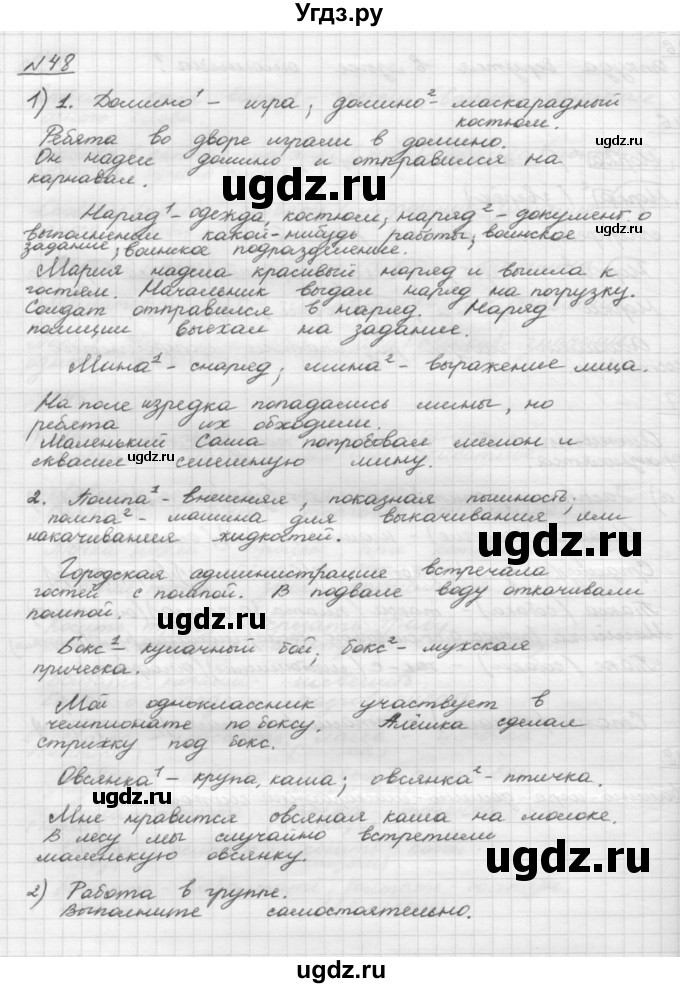 Угдз.ру
№48
1) 1. Домино¹ - игра; домино² - маскарадный
костюм.
Ребята во дворе играли в домино.
Он надел домино и отправился на
карнавал.
Наряд¹ - одежда, костюм; наряд² - документ о
выполнении какой-нибудь работы; воинское
задание; воинское подразделение.
Мария надела красивый наряд и вышла к
гостям. Начальник выдал наряд на погрузку.
Солдат отправился в наряд. Наряд
полиции выехал на задание.
Мина¹ - снаряд; мина² - выражение лица.
На поле изредка попадались мины, но
ребята их обходили.
Маленький Саша попробовал лимон и
сквасил смешную мину.
2. Помпа¹ - внешняя, показная пышность;
помпа² - машина для выкачивания или
накачивания жидкостей.
Городская администрация встречала
гостей с помпой. В подвале воду откачивали
помпой.
Бокс¹ - кулачный бой; бокс² - мужская
прическа.
Мой одноклассник участвует в
чемпионате по боксу. Алёшка сделал
стрижку под бокс.
Овсянка¹ - крупа, каша; овсянка² - птичка.
Мне нравится овсяная каша на молоке.
В лесу мы случайно встретили
маленькую овсянку.
2) Работа в группе.
Выполните самостоятельно.
ugdz.ru